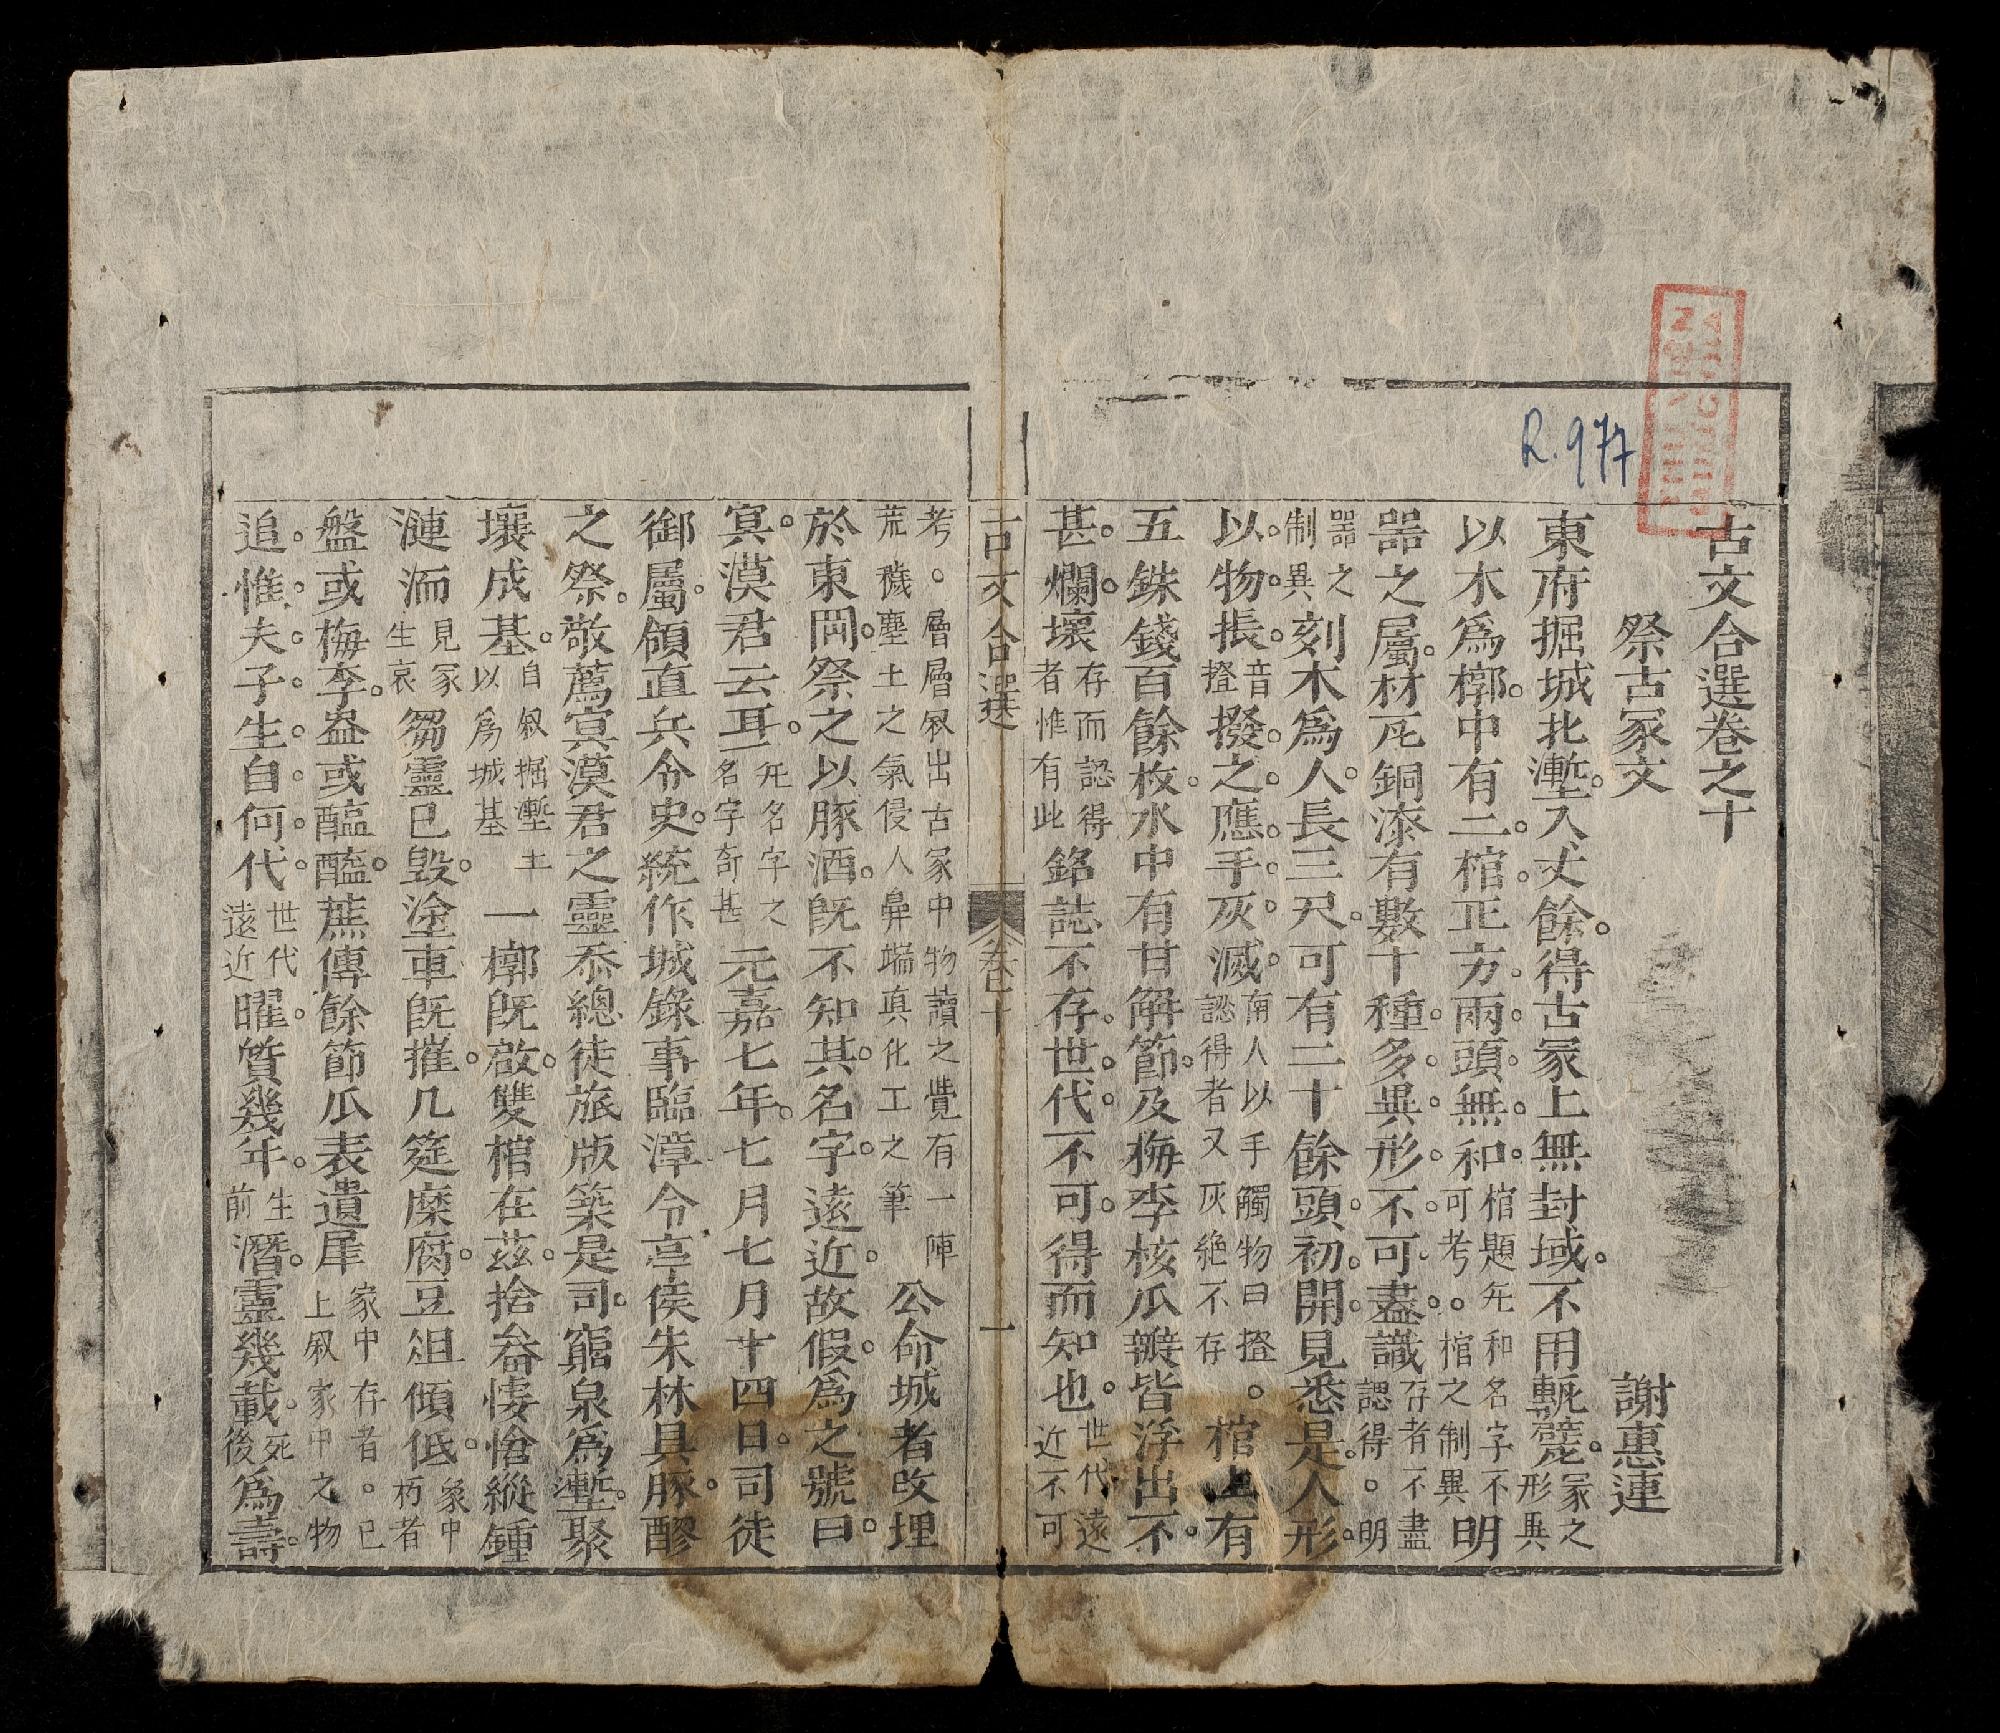 古文合選卷之十
祭古冡文
謝惠連
東府掘城北壍入丈餘得古冡上無封域不用甎甓冡之形異
以木爲槨中有二棺正方兩頭無和棺題先和名字不可考。棺之制異明
噐之屬材瓦銅漆有數十種多異形不可盡識存者不盡認得。明
噐之制異刻木爲人長三尺可有二十餘頭初開見悉是人形
以物掁音撜撥之應手灰滅南人以手觸物曰撜。認得者又灰絶不存棺上有
五銖錢百餘枚水中有甘觧節及梅李核瓜瓣皆浮出不
甚爛壞存而認得者惟有此銘誌不存世代不可得而知也世代遠近不可
古文合選
卷之十
一
考。層層敘出古冡中物讀之覺有一陣荒穢塵土之氣侵人鼻端真化工之筆公命城者改埋
於東岡祭之以豚酒旣不知其名字遠近故假爲之號曰
冥漠君云耳死名字之名字奇甚元嘉七年七月十四日司徒
御屬領直兵令史統作城錄事臨漳令亭侯朱林具豚醪
之祭敬薦冥漠君之靈忝總徒旅版築是司窮泉爲壍聚
壤成基自敘掘壍土以爲城基一槨旣啟雙棺在茲捨畚悽愴縱鍾
漣洏見冡生哀芻靈已毀塗車旣摧几筵糜腐豆俎傾低象中朽者
盤或梅李盎或醢醯蔗傳餘節瓜表遺犀冡中存者。已上敘冡中之物
追惟夫子生自何代世代遠近曜質幾年生前潛靈幾載死後爲壽
R.977